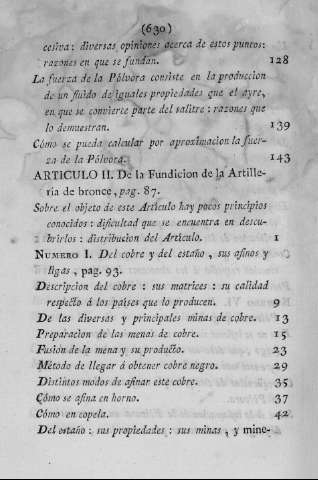 (630)
cesiva: diversas opiniones acerca de estos puntos:
razones en que se fundan. 128
La fuerza de la Pólvora consiste en la produccion
de un fluido de iguales propiedades que el ayre,
en que se convierte parte del salitre: razones que
lo demuestran. 139
Cómo se pueda calcular por aproximacion la fuer-
za de la Pólvora. 143
ARTICULO II. De la Fundicion de la Artille-
ría de bronce, pag. 87.
Sobre el objeto de este Artículo hay pocos principios
conocidos: dificultad que se encuentra en descu-
brirlos: distribucion del Artículo. 1
NUMERO I. Del cobre y del estaño, sus afinos y
ligas, pag. 93.
Descripcion del cobre: sus matrices: su calidad
respecto á los países que lo producen. 9
De las diversas y principales minas de cobre. 13
Preparacion de las menas de cobre. 15
Fusion de la mena y su producto. 23
Método de llegar á obtener cobre negro. 29
Distintos modos de afinar este cobre. 35
Cómo se afina en horno. 37
Cómo en copela. 42
Del estaño: sus propiedades: sus minas, y mine-